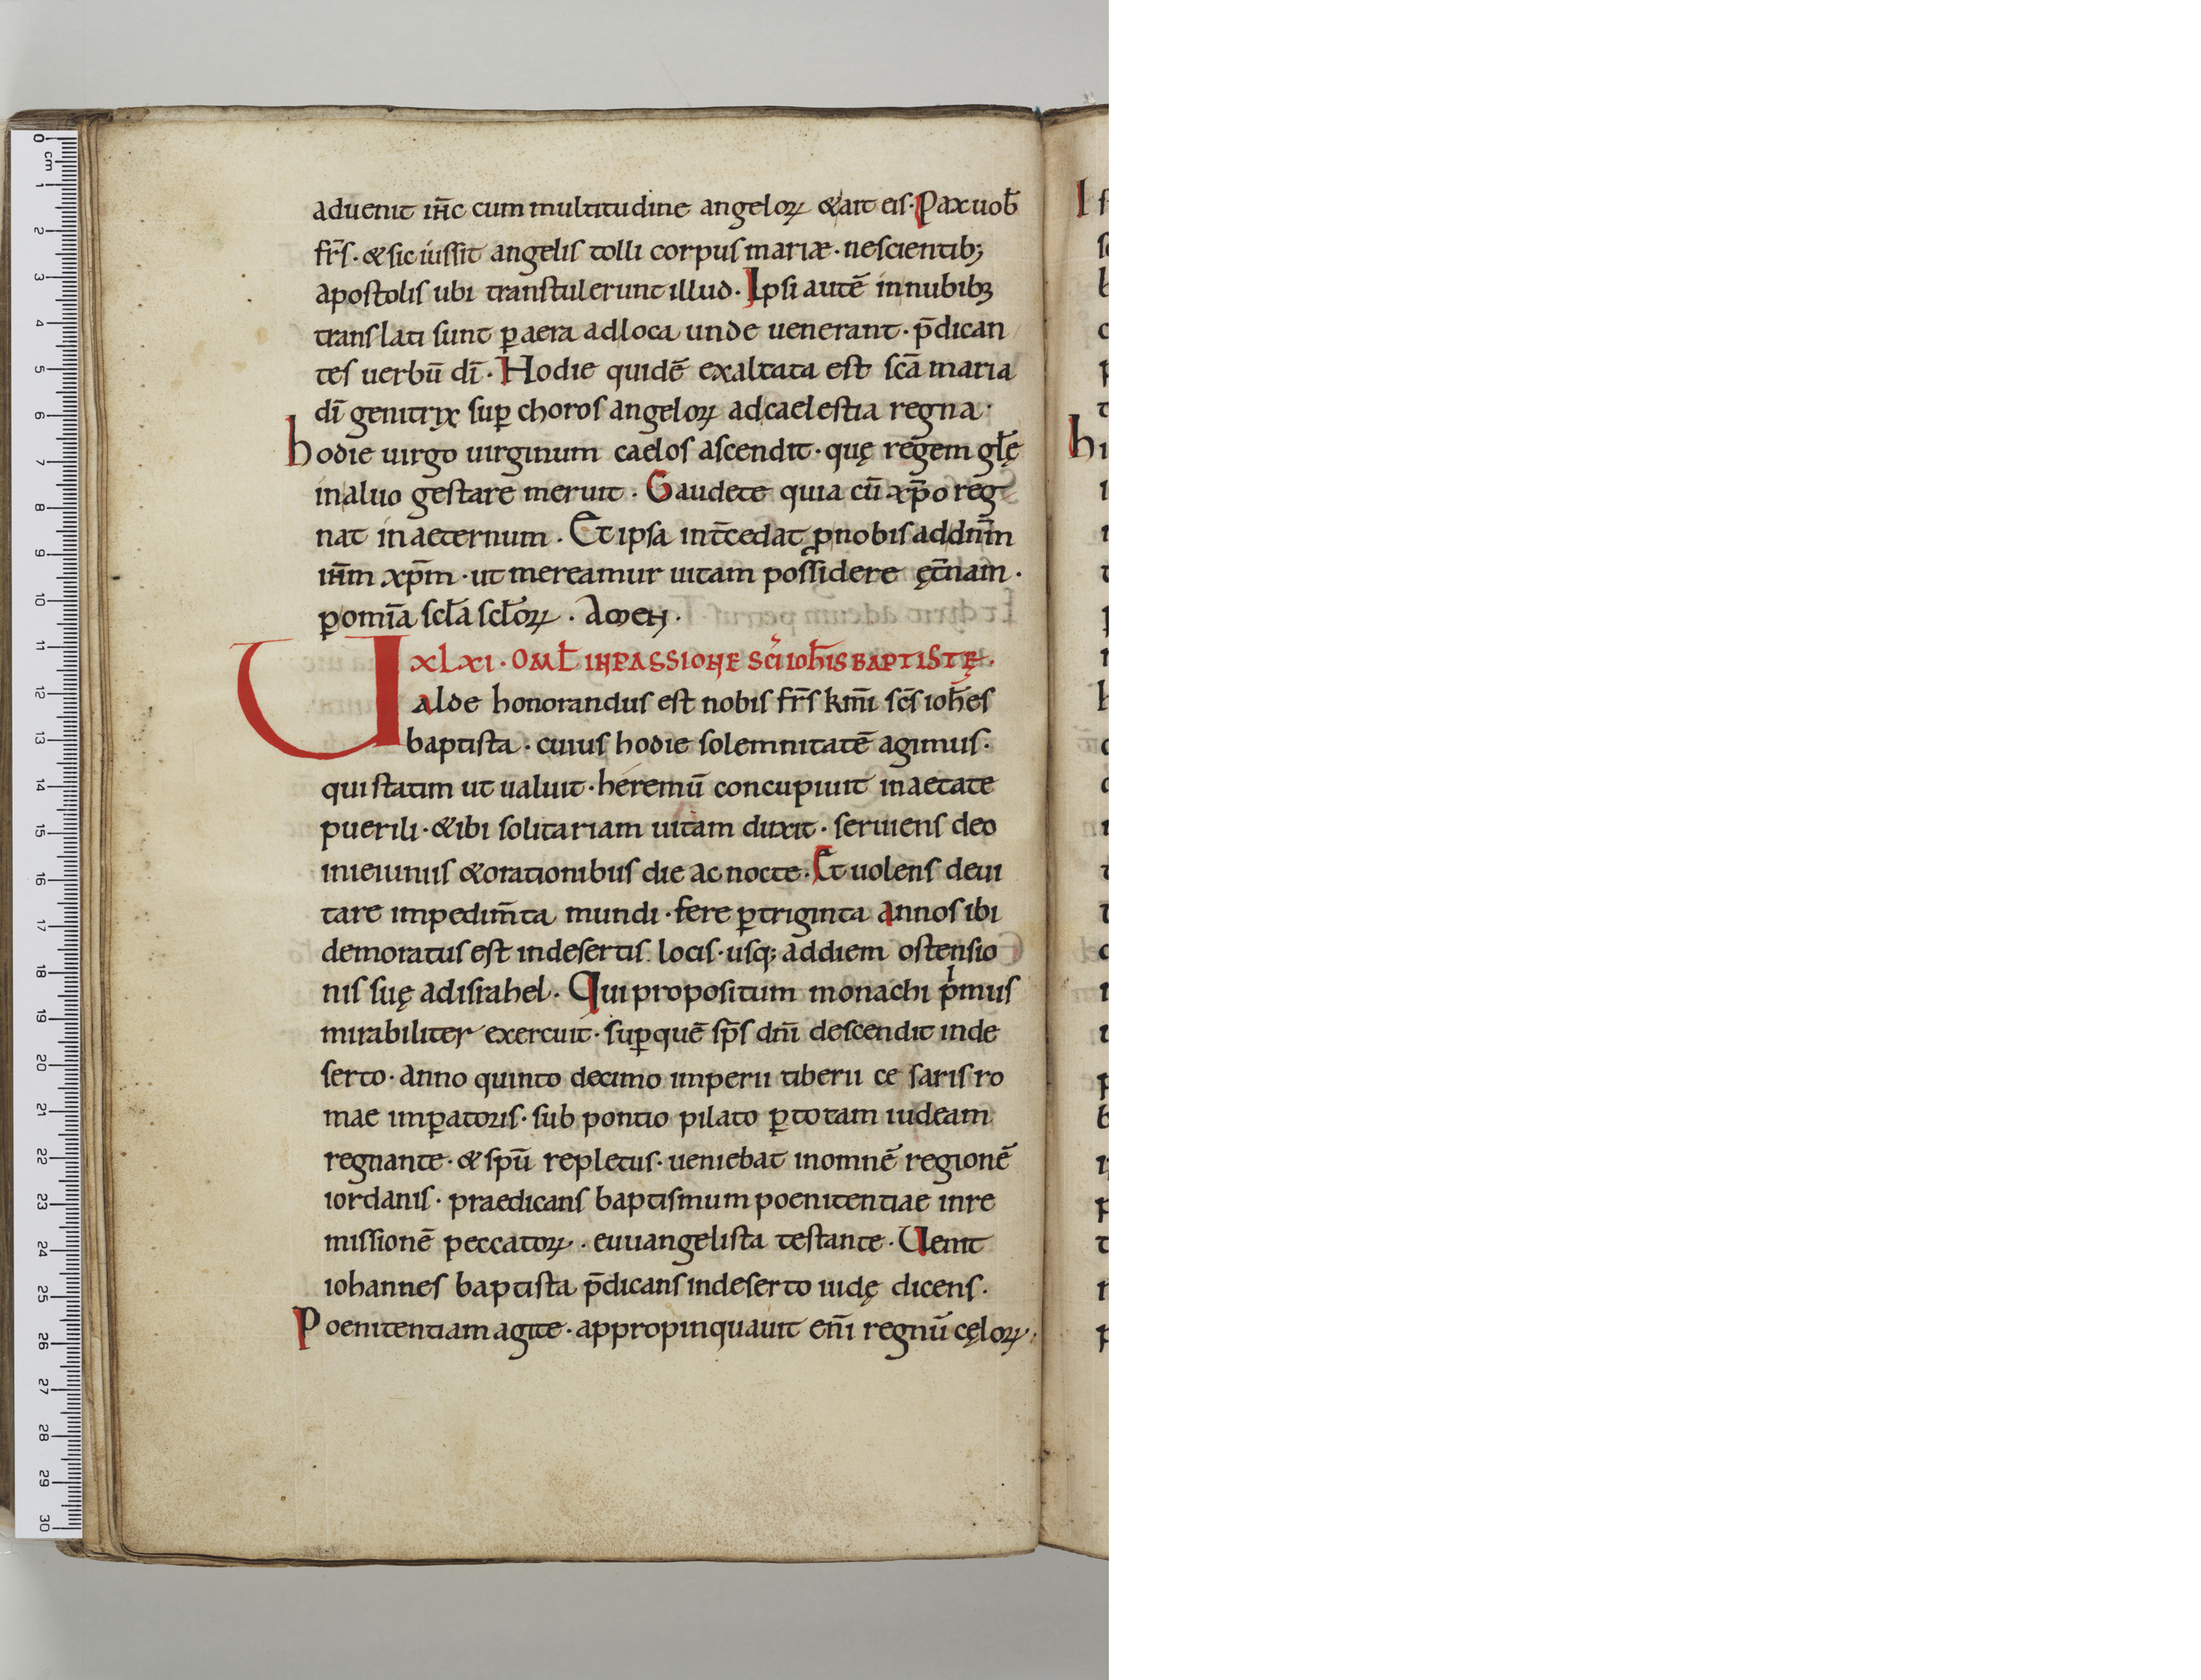 aduenit ih̄c cum multitudine angeloꝝ &ait eis. Pax uob̄
fr̄s. &sic iussit angelis tolli corpus mariæ. nescientib;
apostolis ubi transtulerunt illud. Ipsi autē innubibꝫ
translati sunt ꝑ aera adloca unde uenerant. p̄dican
tes uerbū dī. Hodie quidē exaltata est scā maria
dī genitrix suꝑ choros angeloꝝ adcaelestia regna.
hodie uirgo uirginum caelos ascendit. quę regem gl̄ę
inaluo gestare meruit. Gaudete quia cū xp̄o reg
nat inaeternum. Et ipsa int̄cedat ꝓnobis addnm̄
ih̄m xp̄m. ut mereamur uitam possidere ęt̄nam.
ꝑ omīa scl̄a scl̄oꝝ. Amen.
XLXI. OML̄ IN PASSIONE SCI IOH̄IS BAPTISTĘ.
Ualde honorandus est nobis fr̄s km̄i sc̄s ioh̄es
baptista. cuius hodie solemnitatē agimus.
qui statim ut ualuit. heremū concupiuit inaetate
puerili. &ibi solitariam uitam duxit. seruiens deo
inieiuniis &orationibus die ac nocte. Et uolens deui
tare impedim̄ta mundi. fere ꝑtriginta annos ibi
demoratus est indesertis locis. usq; addiem ostensio
nis suę adisrahel. Qui propositum monachi pͥmus
mirabiliter exercuit. suꝑquē sp̄s dnī descendit inde
serto. anno quinto decimo imperii tiberii ce saris ro
mae imꝑatoris. sub pontio pilato ꝑ totam iudeam
regnante. & spū repletus. ueniebat inomnē regionē
iordanis. praedicans baptismum poenitentiae inre
missionē peccatoꝝ. euuangelista testante. Uenit
iohannes baptista p̄dicans indeserto iudę dicens.
Poenitentiam agite. appropinquauit enī regnū cęloꝝ.
0 cm 1 2 3 4 5 6 7 8 9 10 11 12 13 14 15 16 17 18 19 20 21 22 23 24 25 26 27 28 29 30